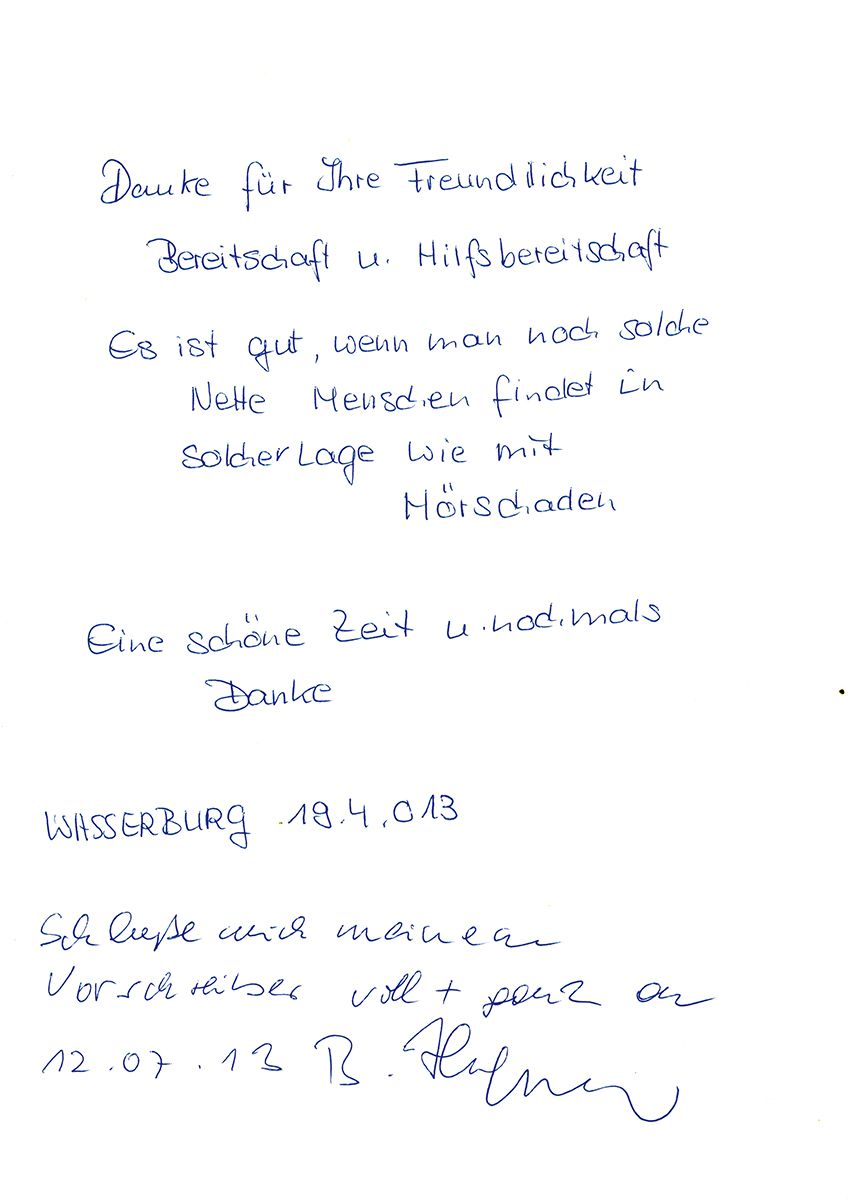 Danke für Ihre Freundlichkeit
Bereitschaft u. Hilfsbereitschaft
Es ist gut, wenn man noch solche
Nette Menschen findet in
solcher Lage wie mit
Hörschaden
Eine schöne Zeit u. nochmals
Danke
WASSERBURG 19.4.013
Schließe mich meinem
Vorschreiber voll + ganz an
12.07.13 B.